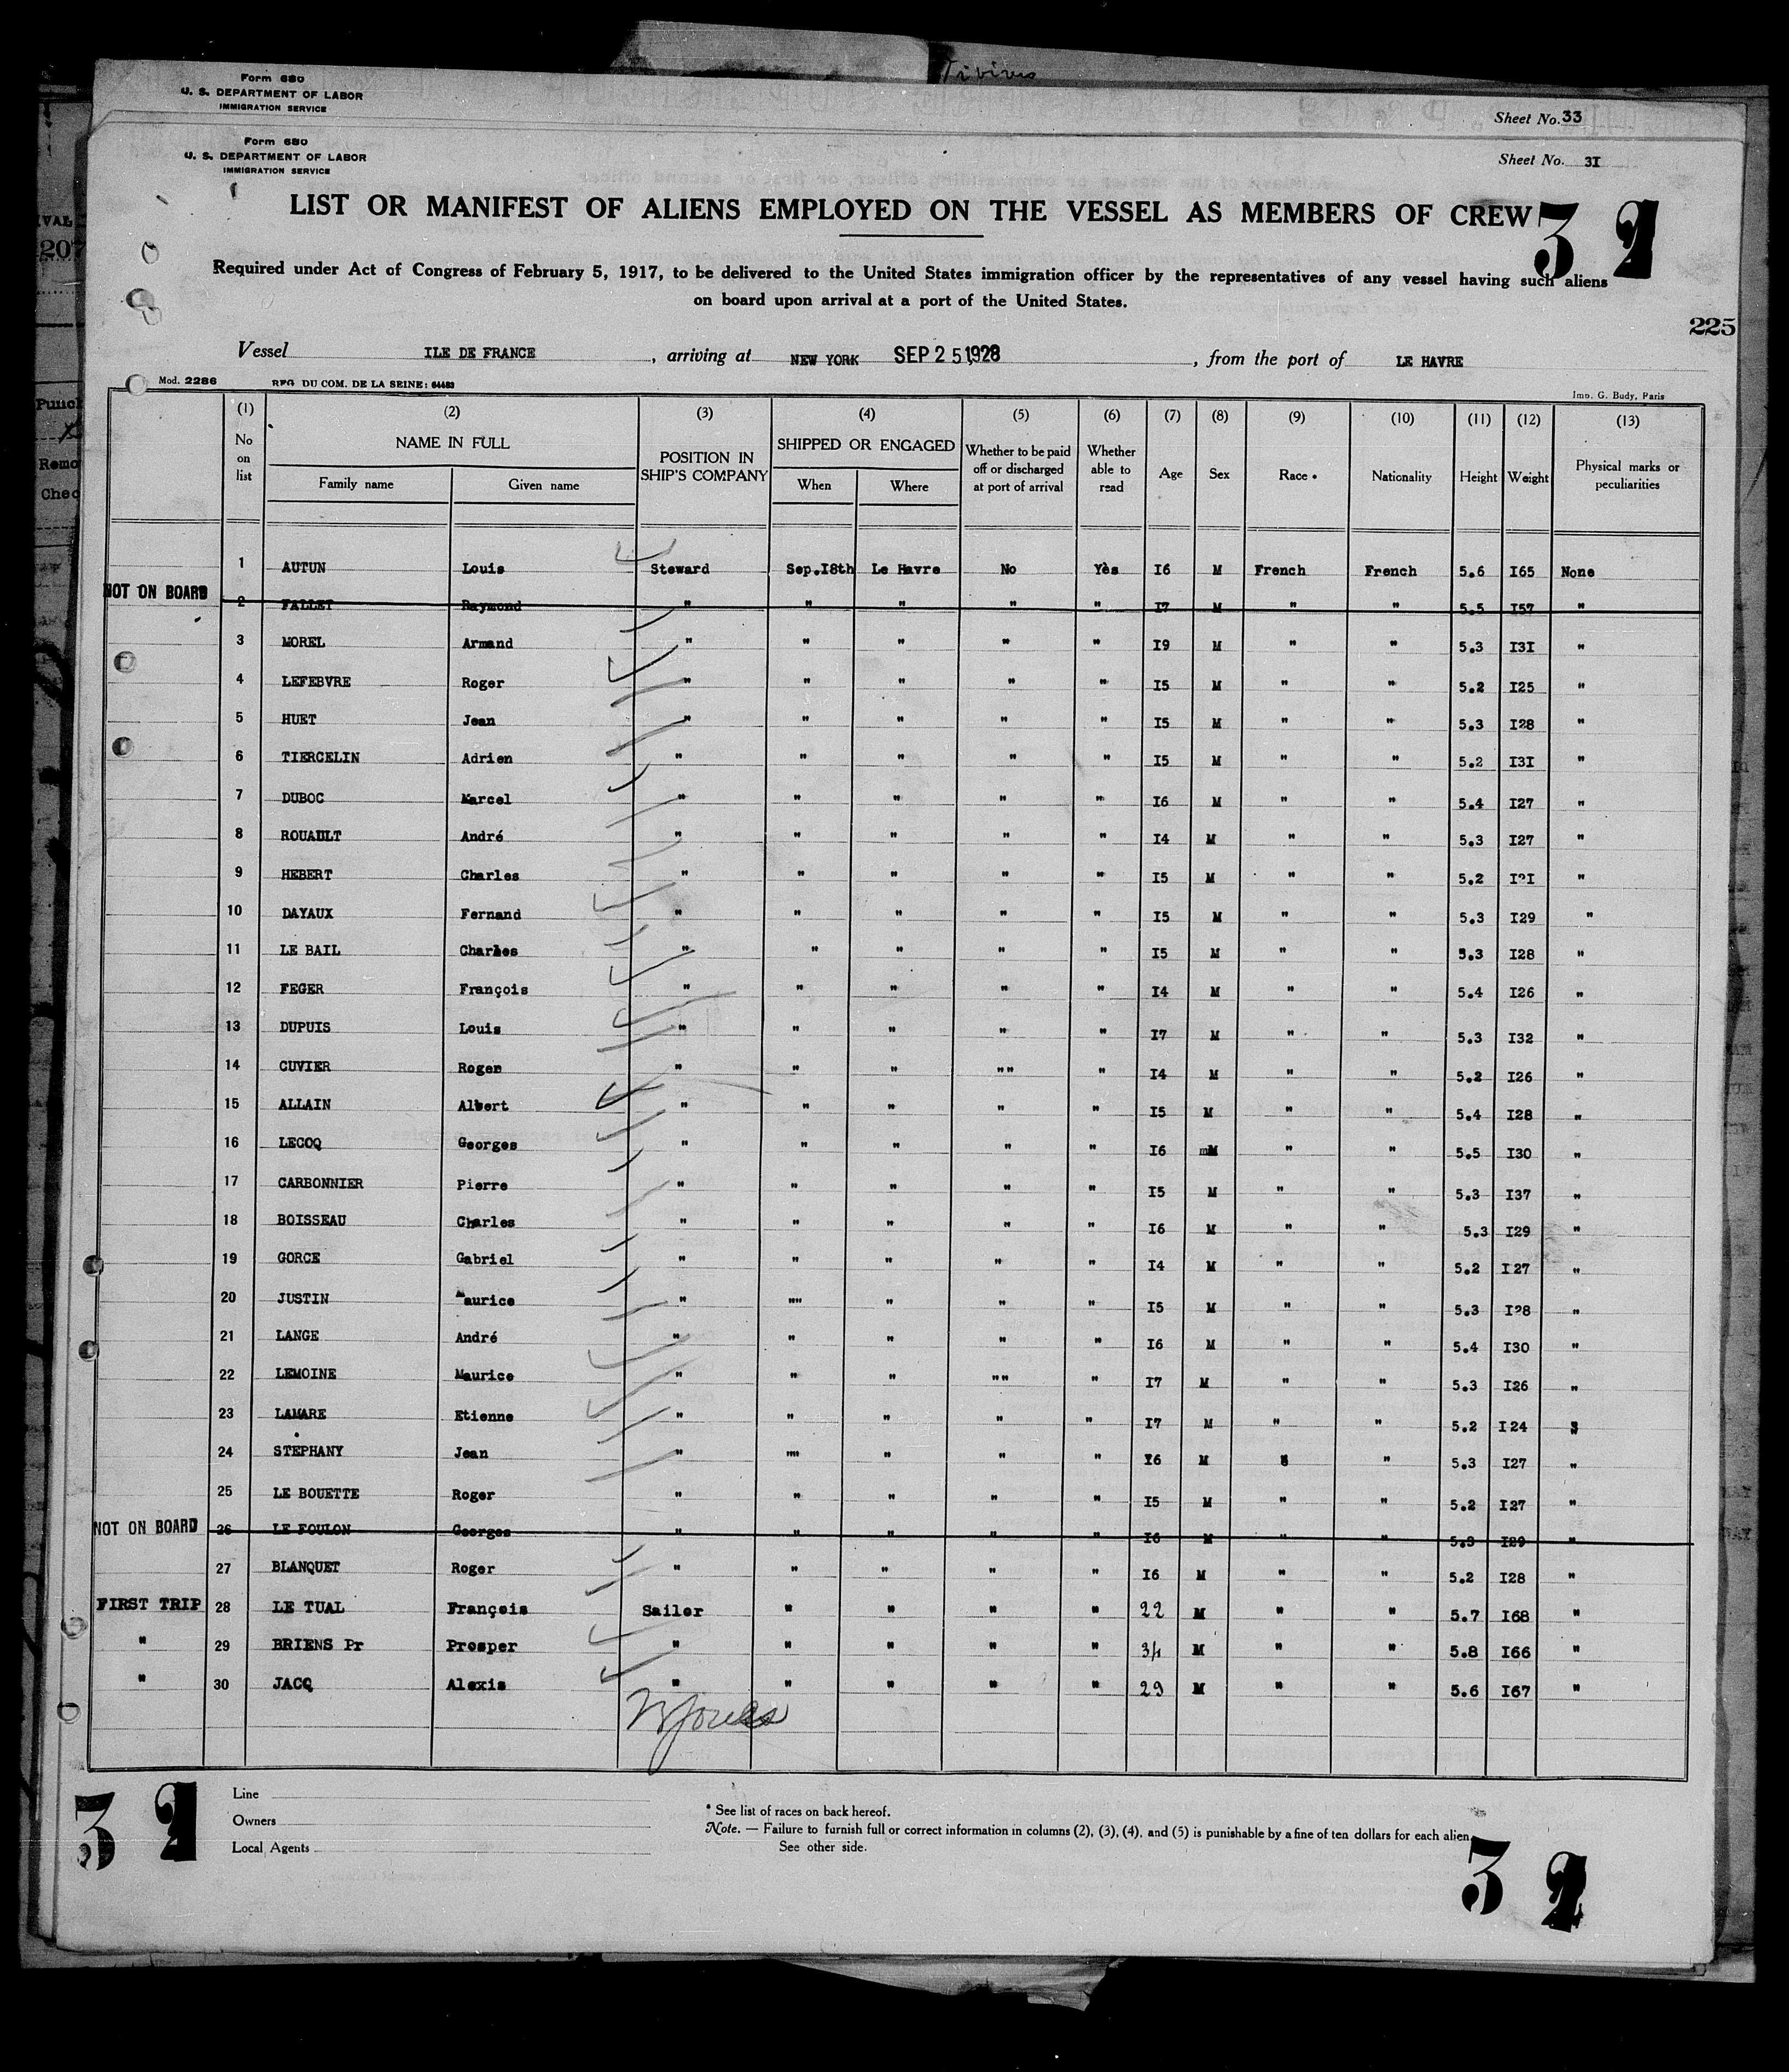 Tivives
Form 680
U. S. DEPARTMENT OF LABOR
IMMIGRATION SERVICE
Sheet No. 33
Form 680
U. S. DEPARTMENT OF LABOR
IMMIGRATION SERVICE
Sheet No. 3I
LIST OR MANIFEST OF ALIENS EMPLOYED ON THE VESSEL AS MEMBERS OF CREW
32
Required under Act of Congress of February 5, 1917, to be delivered to the United States immigration officer by the representatives of any vessel having such aliens
on board upon arrival at a port of the United States.
225
Vessel ILE DE FRANCE, arriving at NEW YORK SEP 25 1928, from the port of LE HAVRE
Mod. 2286 REG DU COM. DE LA SEINE: 64483 Imp. G. Budy, Paris
(1) (2) (3) (4) (5) (6) (7) (8) (9) (10) (11) (12) (13)
No on list NAME IN FULL Family name Given name POSITION IN SHIP'S COMPANY SHIPPED OR ENGAGED When Where Whether to be paid off or discharged at port of arrival Whether able to read Age Sex Race * Nationality Height Weight Physical marks or peculiarities
1 AUTUN Louis Steward Sep.I8th Le Havre No Yès I6 M French French 5.6 I65 None
NOT ON BOARD 2 FALLET Raymond " " " " " I7 M " " 5.5 I57 "
3 MOREL Armand " " " " " I9 M " " 5.3 I3I "
4 LEFEBVRE Roger " " " " " I5 M " " 5.2 I25 "
5 HUET Jean " " " " " I5 M " " 5.3 I28 "
6 TIERCELIN Adrien " " " " " I5 M " " 5.2 I3I "
7 DUBOC Marcel " " " " " I6 M " " 5.4 I27 "
8 ROUAULT André " " " " " I4 M " " 5.3 I27 "
9 HEBERT Charles " " " " " I5 M " " 5.2 "
10 DAYAUX Fernand " " " " " I5 M " " 5.3 I29 "
11 LE BAIL Charles " " " " " I5 M " " 5.3 I28 "
12 FEGER François " " " " " I4 M " " 5.4 I26 "
13 DUPUIS Louis " " " " " I7 M " " 5.3 I32 "
14 CUVIER Roger " " " "" " I4 M " " 5.2 I26 "
15 ALLAIN Albert " " " " " I5 M " " 5.4 I28 "
16 LECOQ Georges " " " " " I6 mM " " 5.5 I30 "
17 CARBONNIER Pierre " " " " " I5 M " " 5.3 I37 "
18 BOISSEAU Charles " " " " " I6 M " " 5.3 I29 "
19 GORCE Gabriel " " " " " I4 M " " 5.2 I27 "
20 JUSTIN Maurice " "" " " " I5 M " " 5.3 I28 "
21 LANGE André " " " " " I6 M " " 5.4 I30 "
22 LEMOINE Maurice " " " "" " I7 M " " 5.3 I26 "
23 LAMARE Etienne " " " " " I7 M " " 5.2 I24 "
24 STEPHANY Jean " "" " " " I6 M " " 5.3 I27 "
25 LE BOUETTE Roger " " " " " I5 M " " 5.2 I27 "
NOT ON BOARD 26 LE FOULON Georges " " " " " I6 M " " 5.3 I29 "
27 BLANQUET Roger " " " " " I6 M " " 5.2 I28 "
FIRST TRIP 28 LE TUAL François Sailor " " " " 22 M " " 5.7 I68 "
" 29 BRIENS Pr Prosper " " " " " 34 M " " 5.8 I66 "
" 30 JACQ Alexis " " " " " 29 M " " 5.6 I67 "
32
Line
Owners
Local Agents
* See list of races on back hereof.
Note. — Failure to furnish full or correct information in columns (2), (3), (4), and (5) is punishable by a fine of ten dollars for each alien.
See other side.
32